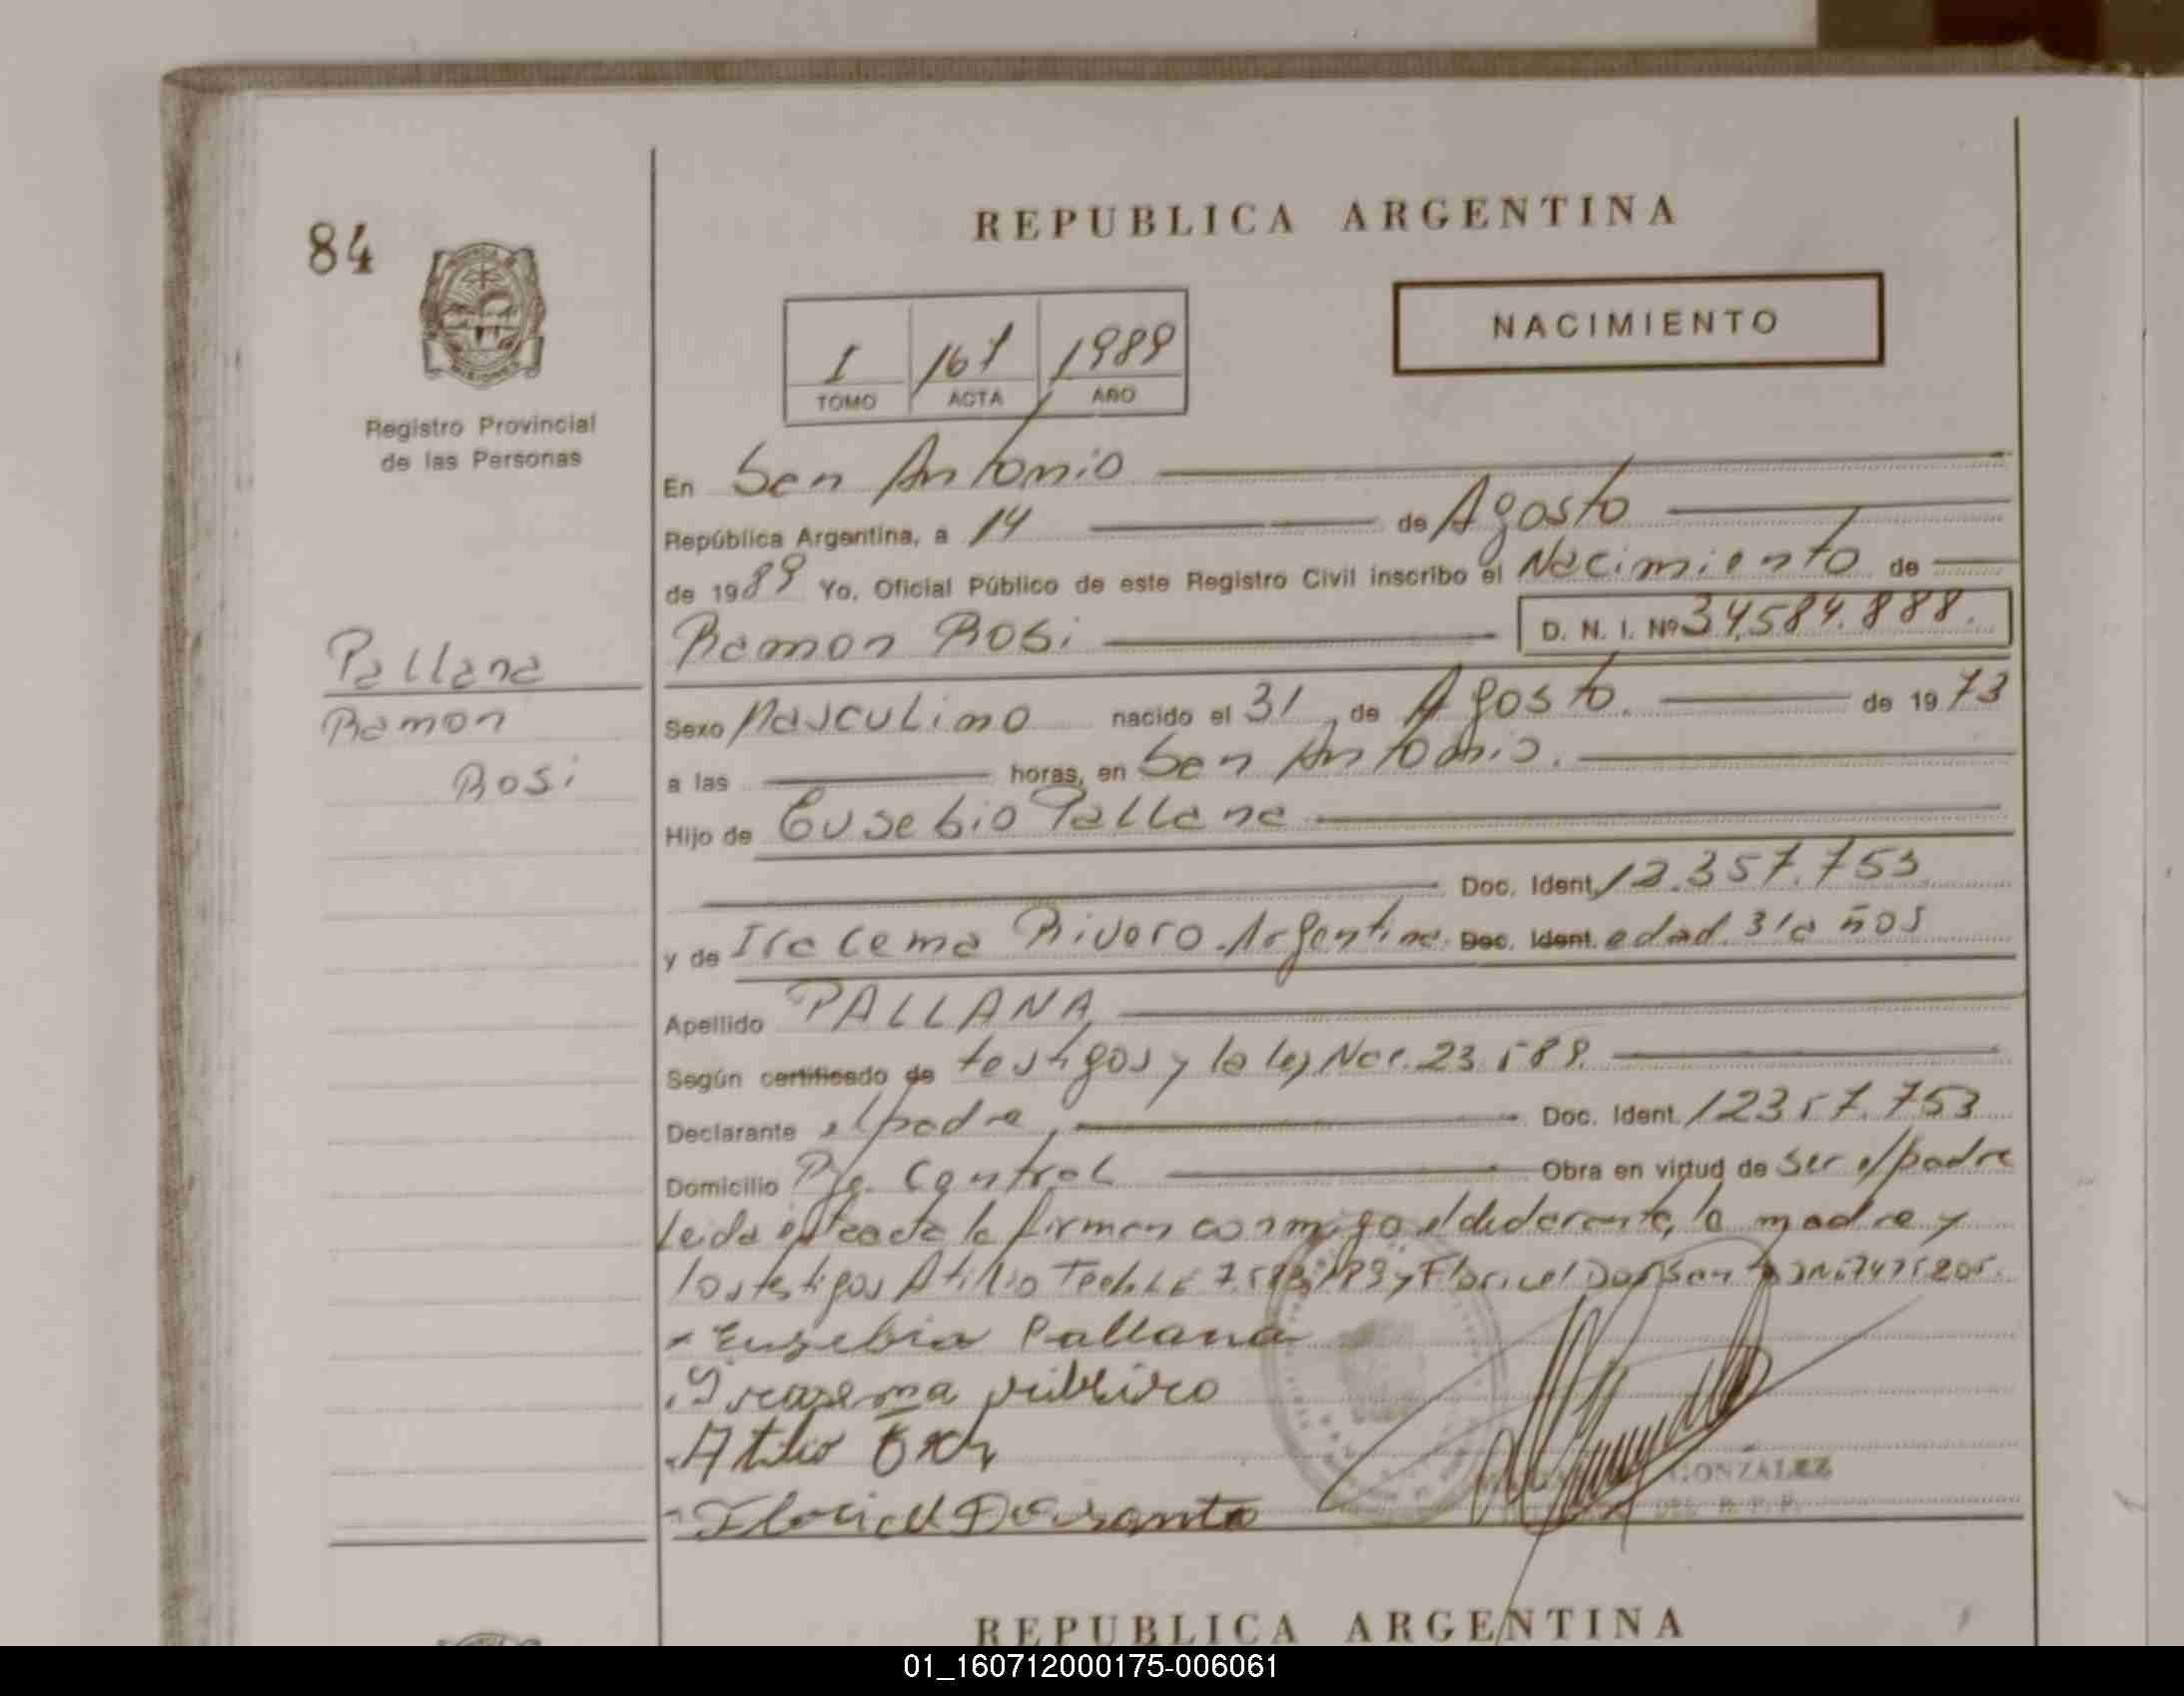 84
REPUBLICA ARGENTINA
NACIMIENTO
I 167 1989
TOMO ACTA AÑO
Registro Provincial
de las Personas
En San Antonio
República Argentina, a 14 de Agosto
de 1989 Yo, Oficial Público de este Registro Civil inscribo el Nacimiento de
Ramon Rosi D. N. I. Nº 34.584.888.
Pallana
Ramon
Rosi
Sexo Masculino nacido el 31 de Agosto. de 1973
a las horas, en San Antonio.
Hijo de Eusebio Pallana
Doc. Ident. 12.357.753
y de Iracema Rivero. Argentina. Doc. Ident. edad 31 años
Apellido PALLANA
Según certificado de testigos y la ley Nac. 23.
Declarante el padre Doc. Ident. 12357.753
Domicilio Pje. Central Obra en virtud de ser el padre
Leida el acta la firman conmigo el declarante, la madre y
los testigos Atilio y Floricel
Eusebio Pallana
Atilio
GONZÁLEZ
DEL R.P.P.
REPUBLICA ARGENTINA
01_160712000175-006061